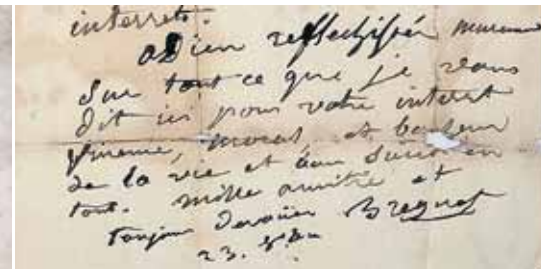 interrets.
adieu reflechissés murement
sur tout ce que je vous
dit ici pour votre interest
phisique, moral, et bonheur
de la vie et bon succes en
tout. mille amitié et
toujour devouër Breguet
23.